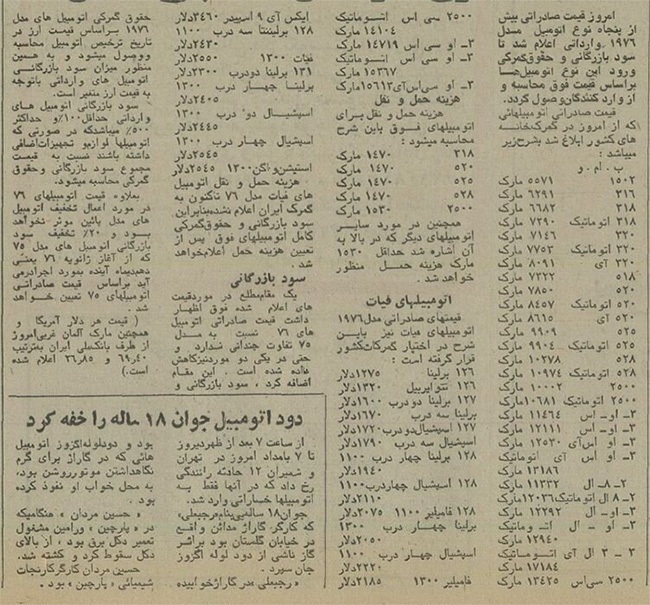 امروز قیمت صادراتی بیش
از پنجاه نوع اتومبیل مسدل
۱۹۷۶ وارداتی اعلام شد تا
سود بازرگانی و حقوق گمرکی
ورود این نوع اتومبیل‌ها
براساس قیمت فوق محاسبه و
از واردکنندگان وصول گردد.
قیمت صادراتی اتومبیلهائی
که از امروز در گمرکخانه
های کشور ابلاغ شد بشرح زیر
میباشد :
ب . ام . و
۱۵۰۲ ۵۵۷۱ مارک
۳۱۶ ۶۲۹۱ مارک
۳۱۸ ۶۶۸۲ مارک
۳۱۸ اتوماتیک ۷۲۹۰ مارک
۳۲۰ ۷۱۴۶ مارک
۳۲۰ اتوماتیک ۷۷۵۳ مارک
۳۲۰ آی ۸۰۹۱ مارک
۵۱۸ ۷۳۲۲ مارک
۵۲۰ ۷۸۵۰ مارک
۵۲۰ اتوماتیک ۸۴۵۷ مارک
۵۲۰ آی ۸۶۱۵ مارک
۵۲۵ ۹۹۰۹ مارک
۵۲۵ اتوماتیک ۹۹۰۴ مارک
۵۲۸ ۱۰۲۷۸ مارک
۵۲۸ اتوماتیک ۱۰۹۷۴ مارک
۲۵۰۰ ۱۰۰۰۲ مارک
۲۵۰۰ اتوماتیک ۱۰۶۸۱ مارک
۳ـ او ـ اس ۱۱۴۶۴ مارک
۳ـ او ـ اس ۱۲۱۱۱ مارک
۳ـ او اس‌آی ۱۲۵۳۰ مارک
۳ـ او اس آی اتوماتیک
۱۳۱۸۶ مارک
۲ـ ۸ ال ۱۱۳۳۲ مارک
۲ـ ۸ ال اتوماتیک ۱۲۰۳۶ مارک
۳ـ او ـ ال ۱۲۲۹۲ مارک
۳ـ او ـ ال اتوماتیک
۱۲۹۴۰ مارک
۳ ـ ۳ ال آی اتوماتیک
۱۷۱۸۴ مارک
۲۵۰۰ سی‌اس ۱۳۴۲۵ مارک
۲۵۰۰ سی اس اتوماتیک
۱۴۱۰۴ مارک
۳ـ او سی اس ۱۴۷۱۹ مارک
۳ـ او سی اس اتوماتیک
۱۵۳۶۷ مارک
۳ـ او سی‌اس‌آی ۱۵۶۱۳ مارک
هزینه حمل و نقل
هزینه حمل و نقل برای
اتومبیلهای فوق باین شرح
محاسبه میشود :
۳۱۸ ۱۴۷۰ مارک
۵۲۰ ۱۴۷۰ مارک
۵۲۵ ۱۴۷۰ مارک
۵۲۸ ۱۴۷۰ مارک
۲۵۰۰ ۱۵۳۰ مارک
همچنین در مورد سایر
اتومبیلهای دیگر که در بالا به
آن اشاره شد حداقل ۱۵۳۰
مارک هزینه حمل منظور
خواهد شد .
اتومبیلهای فیات
قیمتهای صادراتی مدل ۱۹۷۶
اتومبیلهای فیات نیز باین
شرح در اختیار گمرکات کشور
قرار گرفته است :
۱۲۶ برلینا ۱۲۷۵ دلار
۱۲۶ نتواپریبل ۱۳۲۰ دلار
۱۲۷ برلینا دو درب ۱۶۰۰ دلار
برلینا سه درب ۱۶۷۰ دلار
۱۲۷ اسپشیال دو درب ۱۷۲۰ دلار
اسپشیال سه درب ۱۷۹۰ دلار
۱۲۸ برلینا چهار درب ۱۱۰۰
۱۹۴۰ دلار
۱۲۸ اسپشیال چهار درب ۱۱۰۰
۲۱۱۰ دلار
۱۲۸ فامیلیر ۱۱۰۰ ۲۰۷۵ دلار
برلینا چهار درب ۱۳۰۰
۲۰۵۰ دلار
اسپشیال چهار درب ۱۱۰۰
۲۲۲۰ دلار
فامیلیر ۱۳۰۰ ۲۱۸۵ دلار
ایکس آی ۹ اسپیدر ۳۴۶۰ دلار
۱۲۸ برلینتا سه درب ۱۱۰۰
۲۴۳۰ دلار
فیات ۱۳۰۰ ۲۵۵۰ دلار
۱۳۱ برلینا دو درب ۲۳۰۰ دلار
برلینا چهار درب ۱۳۰۰
۲۴۰۵ دلار
اسپشیال دو درب ۱۳۰۰
۲۴۴۵ دلار
اسپشیال چهار درب ۱۳۰۰
۲۵۴۵ دلار
استیشن‌واگن ۱۳۰۰ ۲۵۴۵ دلار
هزینه حمل و نقل اتومبیل
های فیات مدل ۷۶ تاکنون به
گمرک ایران اعلام نشده بنابراین
سود بازرگانی و حقوق گمرکی
کامل اتومبیلهای فوق پس از
تعیین هزینه حمل اعلام خواهد
شد .
سود بازرگانی
یک مقام مطلع در مورد قیمت
های اعلام شده فوق اظهار
داشت قیمت صادراتی اتومبیل
های ۷۶ نسبت به مدل
۷۵ تفاوت چندانی ندارد و
حتی در یکی دو مورد نیز کاهش
داده شده است . این مقام
اضافه کرد ، سود بازرگانی و
حقوق گمرکی اتومبیل های مدل
۱۹۷۶ براساس قیمت ارز در
تاریخ ترخیص اتومبیل محاسبه
و وصول میشود و به همین
منظور میزان سود بازرگانی
اتومبیل های وارداتی باتوجه
به قیمت ارز متغیر است.
سود بازرگانی اتومبیل های
وارداتی حداقل ۱۰۰٪ و حداکثر
۵۰۰٪ میباشد که در صورتی که
اتومبیلها لوازم و تجهیزات اضافی
داشته باشند نسبت به قیمت
مجموع سود بازرگانی و حقوق
گمرکی محاسبه میشود.
بعلاوه قیمت اتومبیلهای ۷۶
در مورد اعمال تخفیف اتومبیل
های مدل پائین موثر نخواهد
بود و ۲۰٪ تخفیف سود
بازرگانی اتومبیل های مدل ۷۵
که از آغاز ژانویه ۷۶ یعنی
دهم دیماه آینده بمورد اجرا در می
آید براساس قیمت صادراتی
اتومبیلهای ۷۵ تعیین خواهد
شد .
( قیمت هر دلار آمریکا و
همچنین مارک آلمان غربی امروز
از طرف بانک ملی ایران به ترتیب
۶۹٫۴۰ و ۲۶٫۸۵ اعلام شده
است.)
دود اتومبیل جوان ۱۸ ساله را خفه کرد
از ساعت ۷ بعد از ظهر دیروز
تا ۷ بامداد امروز در تهران
و شمیران ۱۲ حادثه رانندگی
رخ داد که در آنها فقط به
اتومبیلها خساراتی وارد شد .
جوان ۱۸ ساله‌یی بنام رجبعلی،
که کارگر گاراژ مدائن واقع
در خیابان گلستان بود براثر
گاز ناشی از دود لوله اگزوز
جان سپرد .
« رجبعلی » در گاراژ خوابیده
بود و دود لوله اگزوز اتومبیل
هائی که در گاراژ برای گرم
نگاهداشتن موتور روشن بود،
به محل خواب او نفوذ کرده
بود .
« حسین مردان » هنگامیکه
در « پارچین » ورامین مشغول
تعمیر دکل برق بود ، از بالای
دکل سقوط کرد و کشته شد.
حسین مردان کارگر کارخانجات
شیمیائی « پارچین » بود.